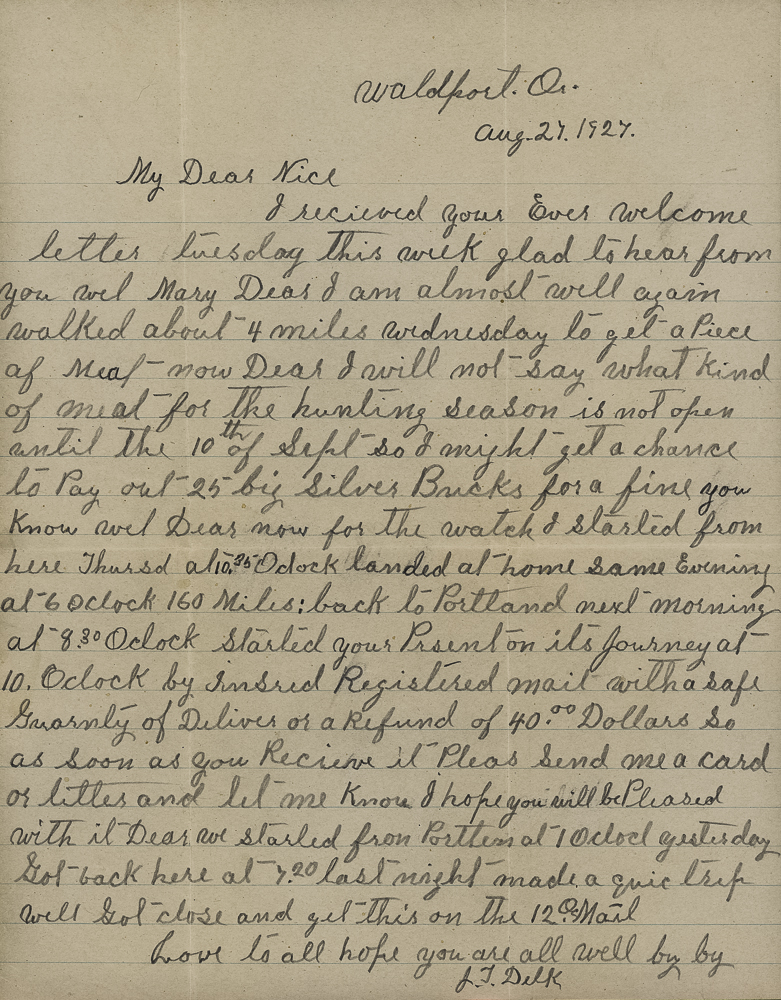 Waldport. Or.
Aug. 27. 1927.
My Dear Nice
I recieved your Ever welcome
letter tuesday this week glad to hear from
you wel Mary Dear I am almost well again
walked about 4 miles wednesday to get a Piece
of Meat now Dear I will not say what Kind
of meat for the hunting season is not open
until the 10th of Sept so I might get a chance
to Pay out 25 big Silver Bucks for a fine you
Know wel Dear now for the watch I started from
here Thursd at 10.35 Oclock landed at home same Evening
at 6 oclock 160 Miles; back to Portland next morning
at 8.30 Oclock started your Prsent on its Journey at
10. Oclock by Insred Registered mail with a safe
Guarnty of Deliver or a Refund of 40.00 Dollars So
as soon as you Recieve it Pleas Send me a card
or letter and let me Know I hope you will be Pleased
with it Dear we started fron at 1 Oclock yesterday
Got back here at 7.20 last night made a quic trip
well Got close and get this on the 12 Mail
Love to all hope you are all well by by
J. T. Delk